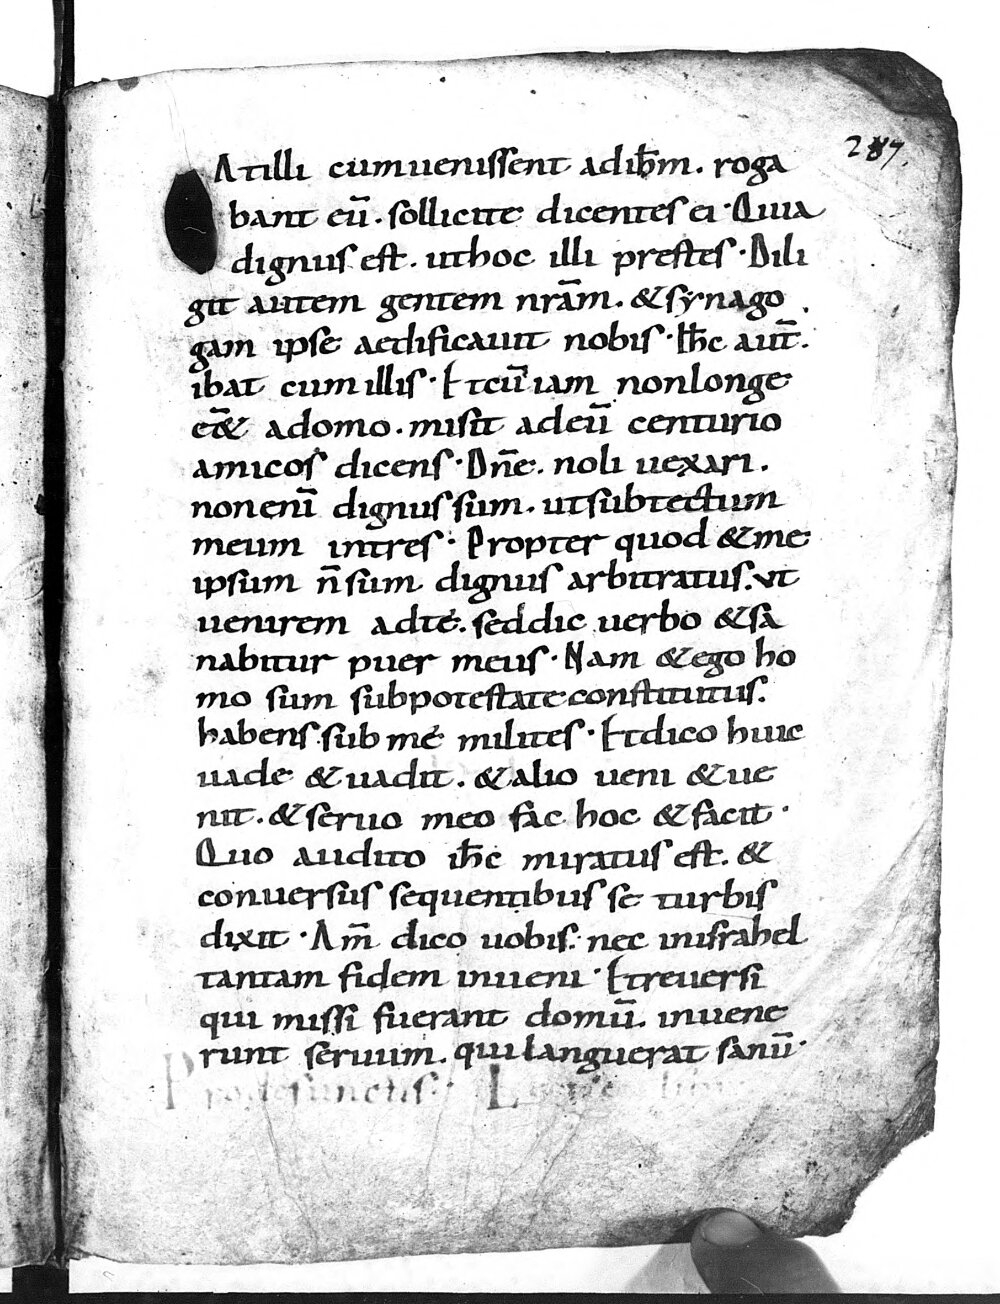 287.
At illi cum uenissent ad ih̄m. roga
bant eū. sollicite dicentes ei · Quia
dignus est. ut hoc illi prestes · Dili
git autem gentem nr̄am. & synago
gam ipse aedificauit nobis · Ih̄c aut̄.
ibat cum illis · Et cū iam non longe
ēēt a domo. misit ad eū centurio
amicos dicens · Dn̄e. noli uexari.
non enī dignus sum. ut sub tectum
meum intres · Propter quod & me
ipsum n̄ sum dignus arbitratus. ut
uenirem ad té. sed dic uerbo & sa
nabitur puer meus · Nam & ego ho
mo sum sub potestate constitutus.
habens sub mé milites · Et dico huic
uade & uadit. & alio ueni & ue
nit. & seruo meo fac hoc & facit ·
Quo audito ih̄c miratus est. &
conuersus sequentibus se turbis
dixit · Am̄ dico uobis. nec in israhel
tantam fidem inueni · Et reuersi
qui missi fuerant domū. inuene
runt seruum. qui languerat sanū ·
Pro defunctis ·